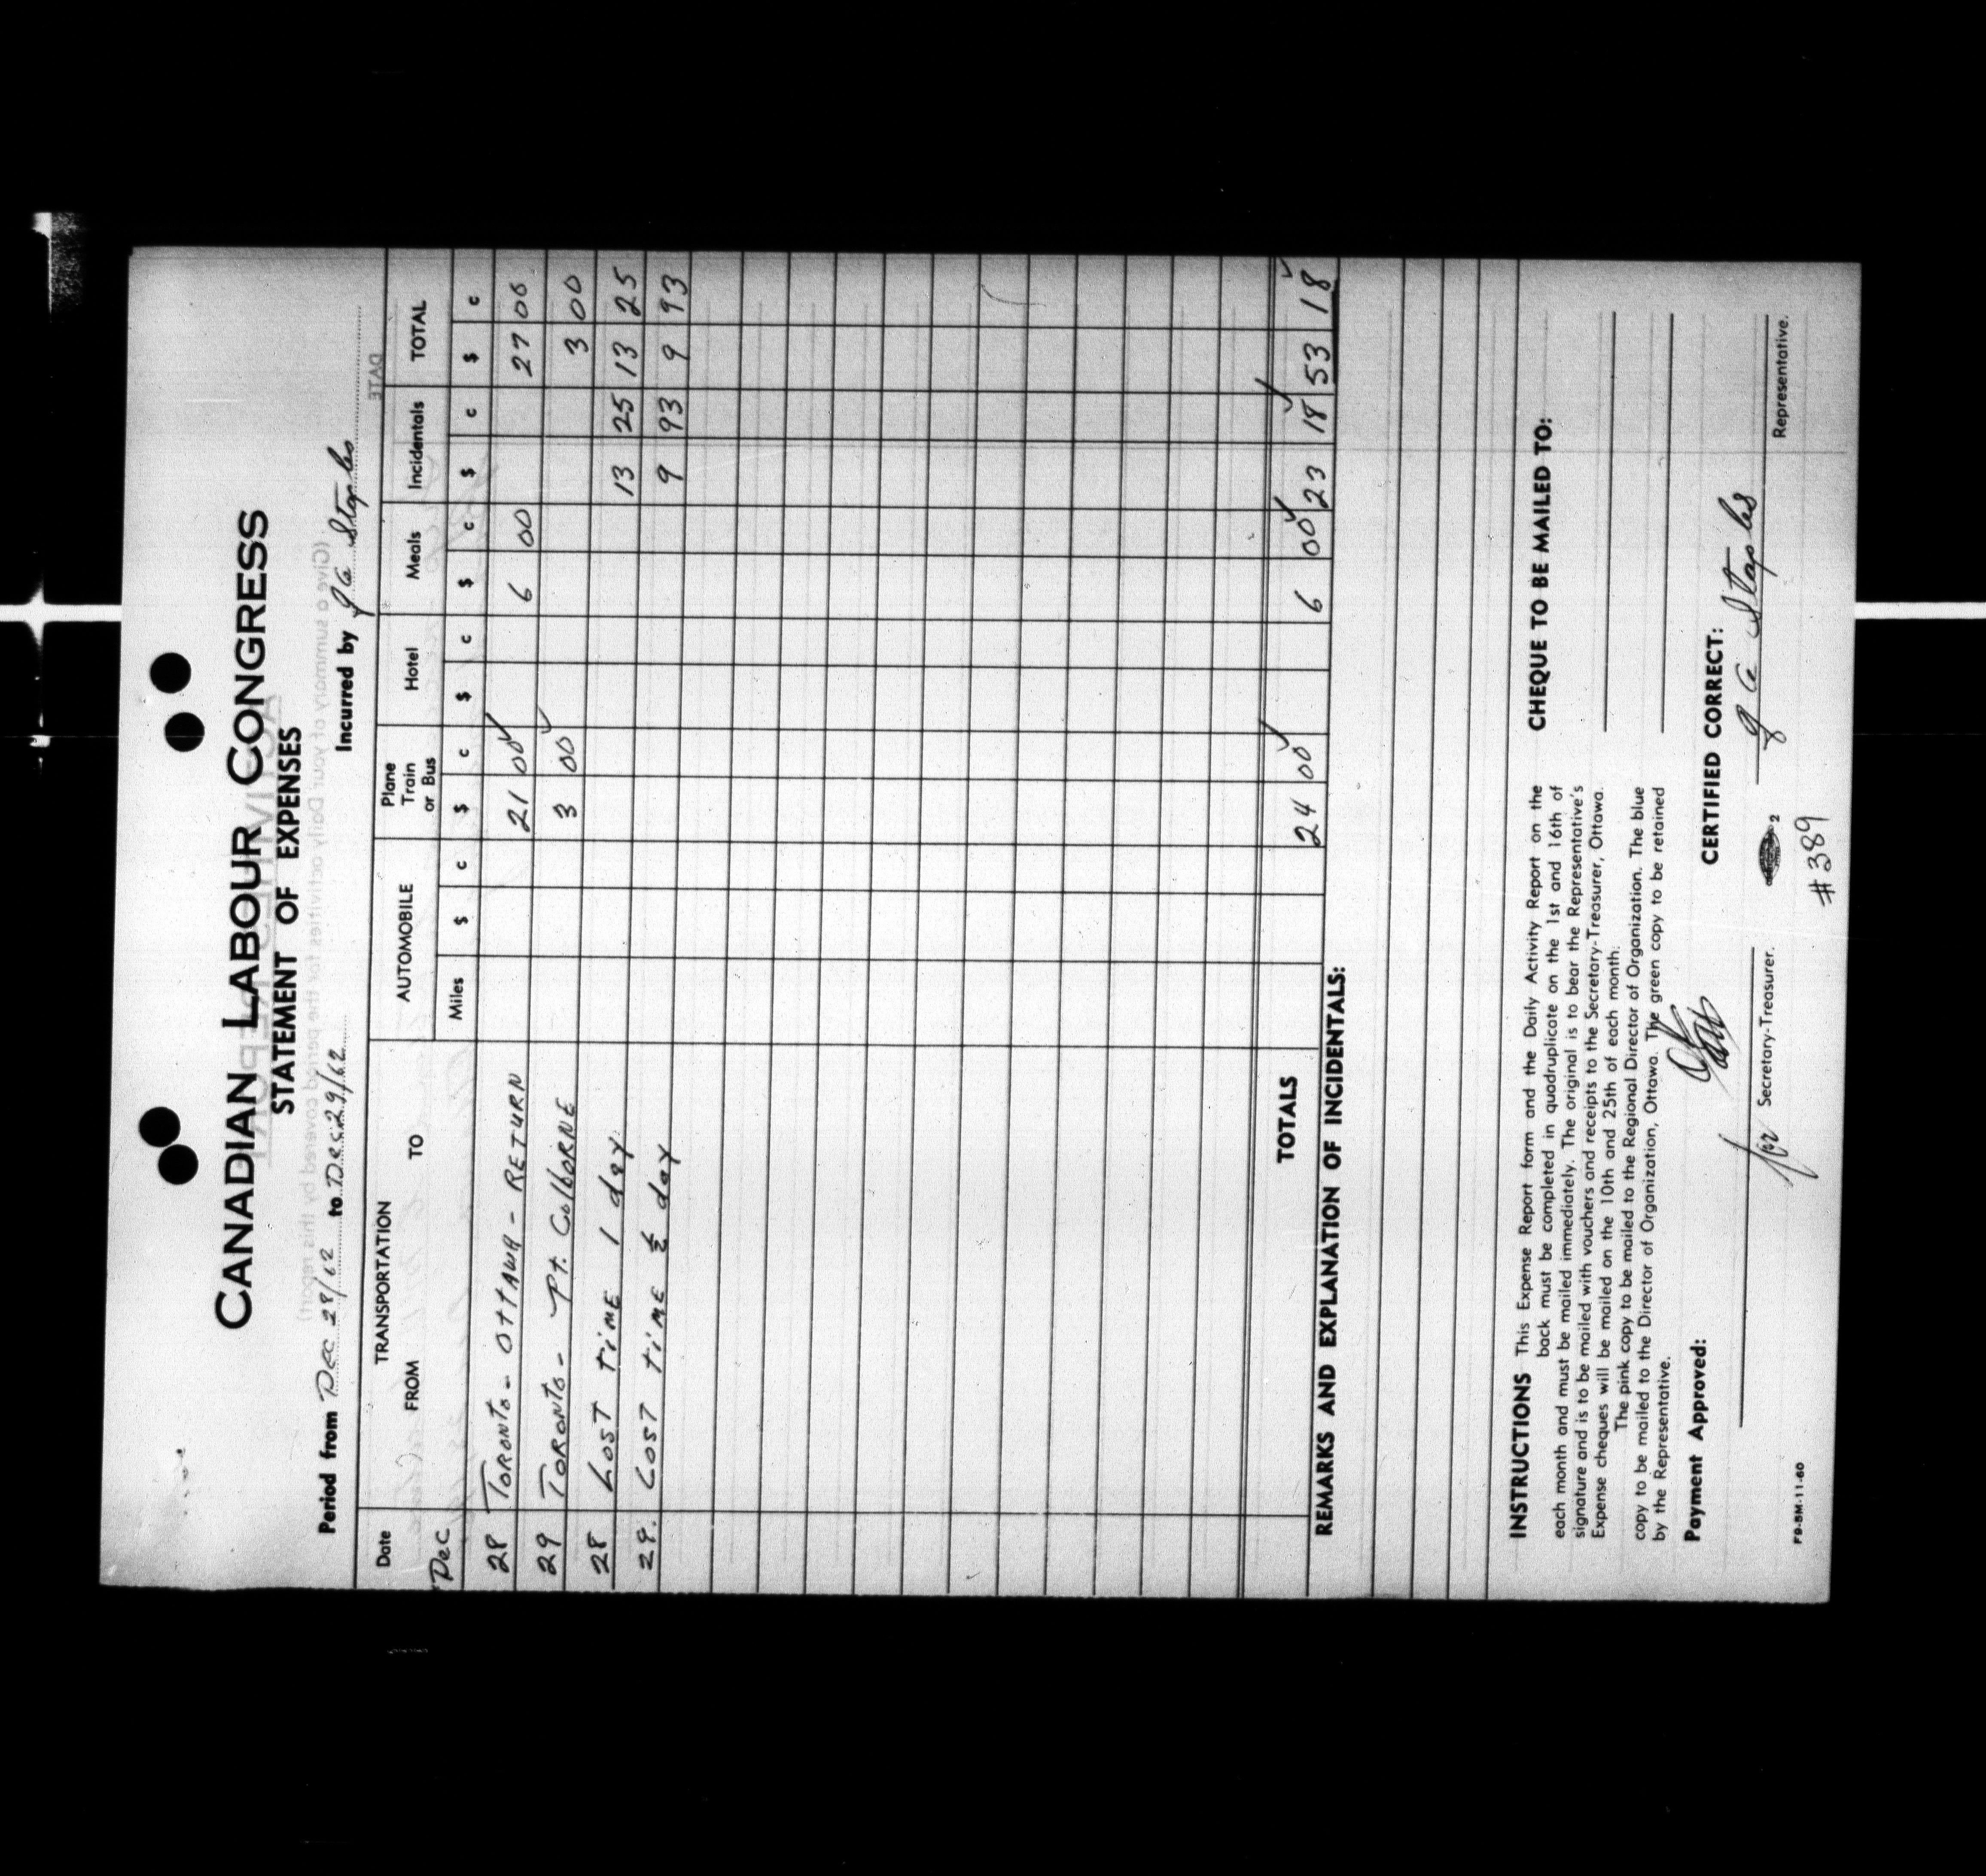 CANADIAN LABOUR CONGRESS
STATEMENT OF EXPENSES
Period from Dec 28/62 to Dec 29/62 Incurred by J C Staples
Date TRANSPORTATION AUTOMOBILE Plane Train or Bus Hotel Meals Incidentals TOTAL
FROM TO Miles $ c $ c $ c $ c $ c $ c
Dec
28 Toronto - Ottawa - Return 21 00 6 00 27 00
29 Toronto - Pt. Colborne 3 00 3 00
28 Lost time 1 day 13 25 13 25
29. Lost time ½ day 9 93 9 93
TOTALS 24 00 6 00 23 18 53 18
REMARKS AND EXPLANATION OF INCIDENTALS:
INSTRUCTIONS This Expense Report form and the Daily Activity Report on the
back must be completed in quadruplicate on the 1st and 16th of
each month and must be mailed immediately. The original is to bear the Representative's
signature and is to be mailed with vouchers and receipts to the Secretary-Treasurer, Ottawa.
Expense cheques will be mailed on the 10th and 25th of each month.
The pink copy to be mailed to the Regional Director of Organization. The blue
copy to be mailed to the Director of Organization, Ottawa. The green copy to be retained
by the Representative.
CHEQUE TO BE MAILED TO:
Payment Approved:
CERTIFIED CORRECT:
J C Staples
Secretary-Treasurer.
Representative.
2
#389
F9-5M-11-60